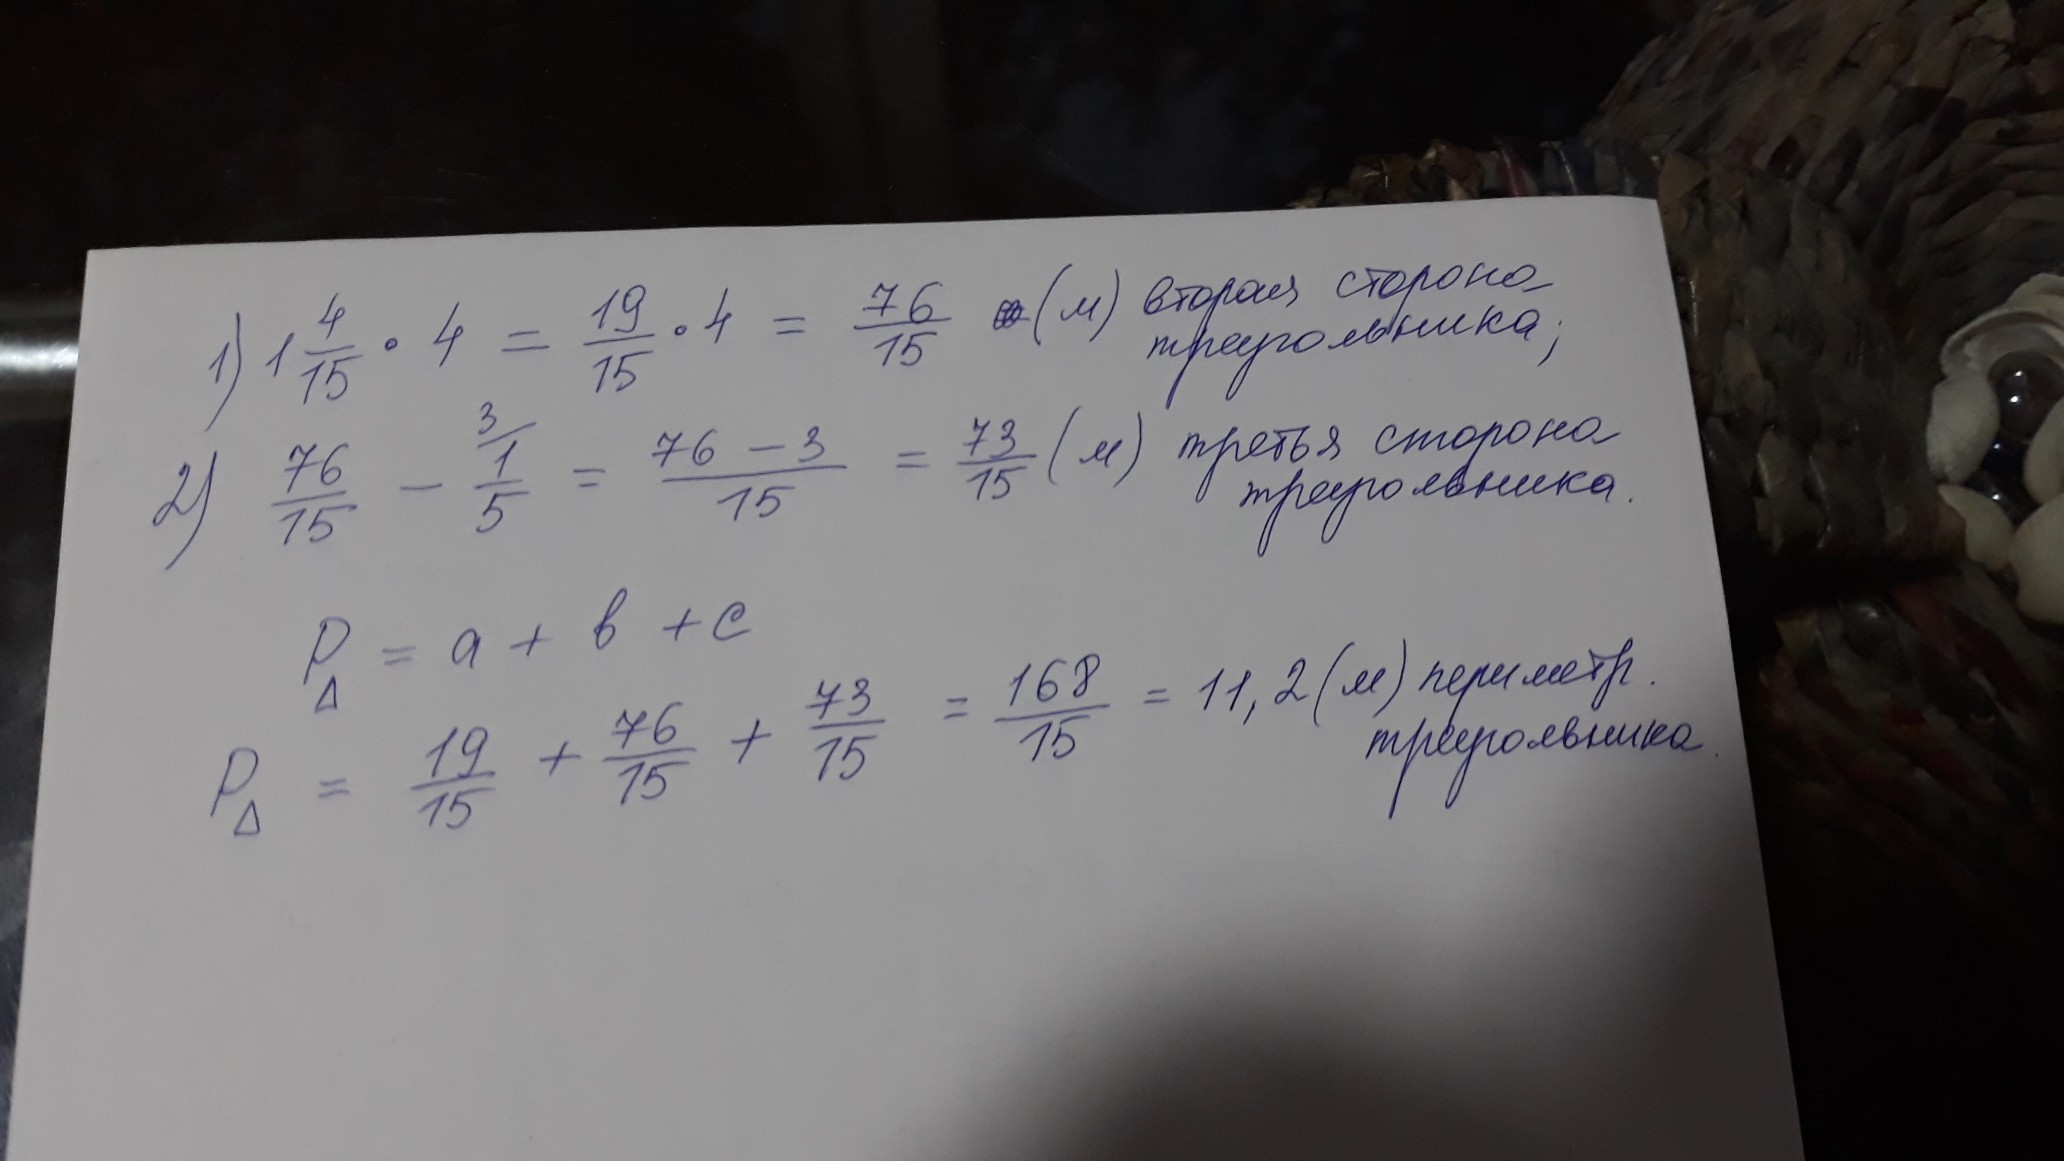 1) 1 4/15 • 4 = 19/15 • 4 = 76/15 (м) вторая сторона
треугольника;
2) 76/15 - 1/5 (3 = 76 - 3/15 = 73/15 (м) третья сторона
треугольника.
P△ = a + b + c
P△ = 19/15 + 76/15 + 73/15 = 168/15 = 11,2 (м) периметр.
треугольника.